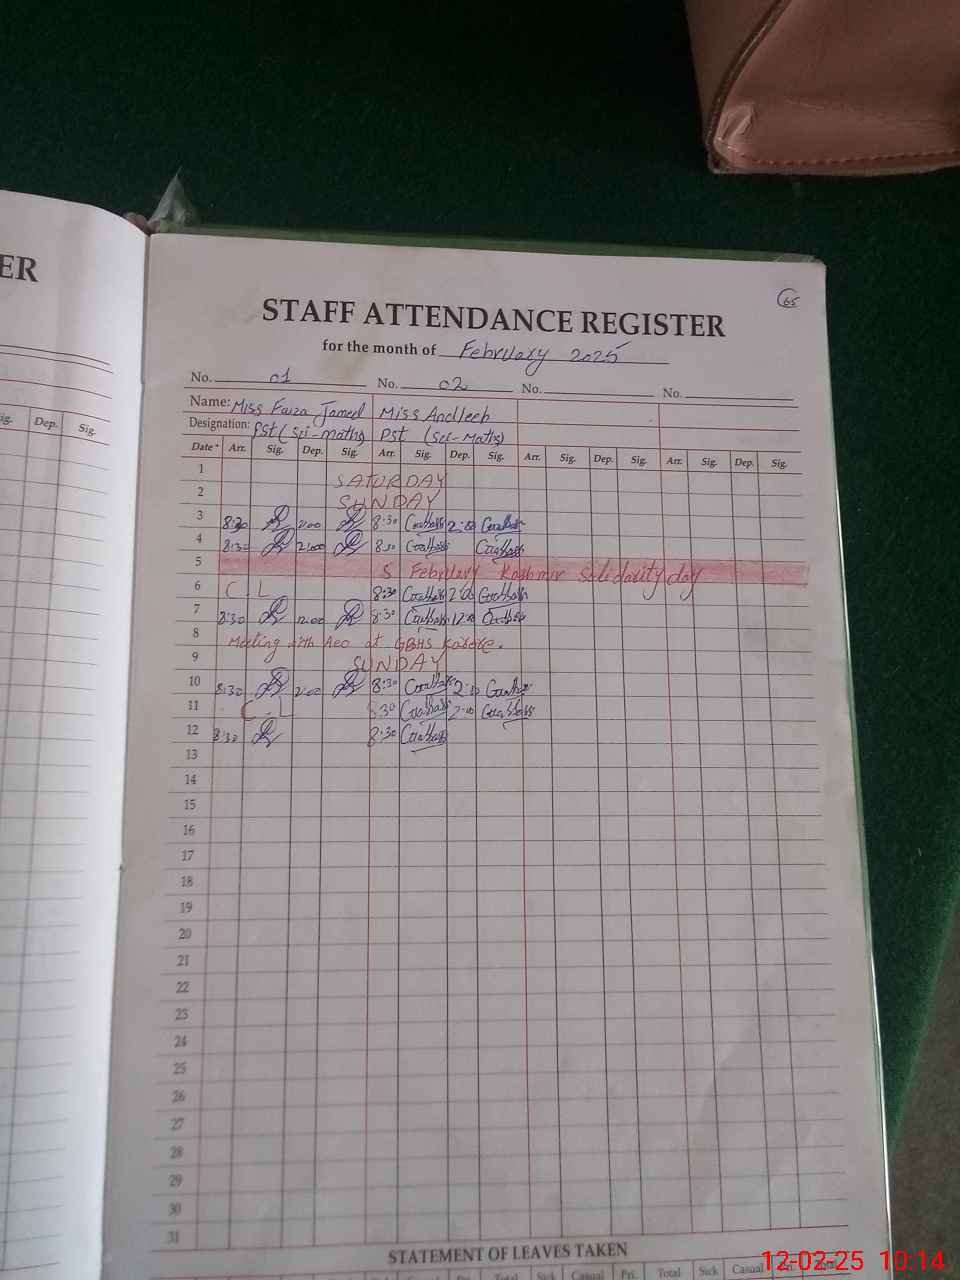 ER
65
STAFF ATTENDANCE REGISTER
for the month of February 2025
No. 01 No. 02 No. No.
Name: Miss Faiza Jameel Miss Andleeb
Designation: PST (Sci-maths) PST (Sci-Maths)
Sig. Dep. Sig.
Date Arr. Sig. Dep. Sig. Arr. Sig. Dep. Sig. Arr. Sig. Dep. Sig. Arr. Sig. Dep. Sig.
1 SATURDAY
2 SUNDAY
3 8:30 2:00 8:30 2:00
4 8:30 2:00 8:30
5 5 February Kashmir Solidarity day
6 C L 8:30 2:00
7 8:30 12:00 8:30 12:00
8 Meeting with Aeo at GBHS
9 SUNDAY
10 8:30 2:00 8:30 2:00
11 C.L 8:30 2:00
12 8:30 8:30
13
14
15
16
17
18
19
20
21
22
23
24
25
26
27
28
29
30
31
STATEMENT OF LEAVES TAKEN
Total Sick Casual Pri. Total Sick Casual
12-02-25 10:14